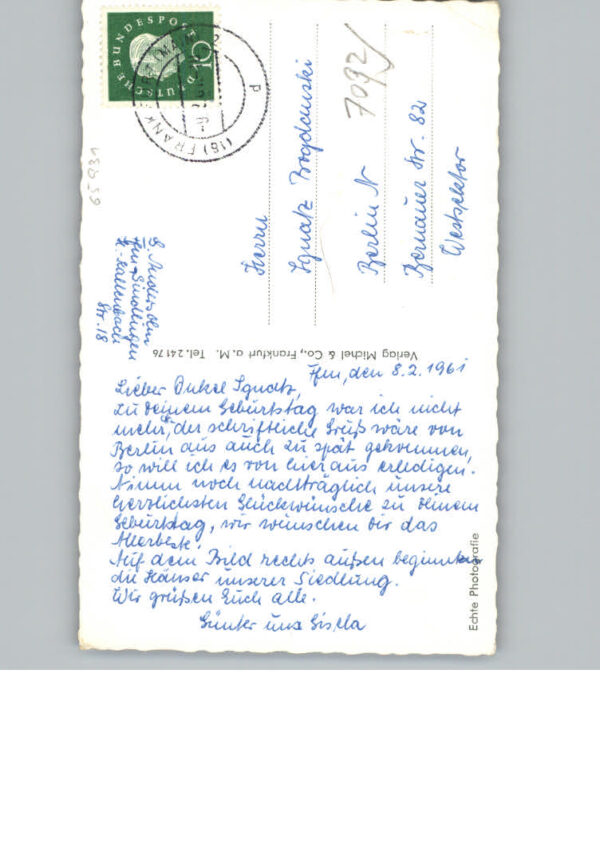 DEUTSCHE BUNDESPOST
10
(16) FRANKFURT (MAIN)
p
65931
7092/
Herrn
Ignatz Bogdanski
Berlin N
Bernauer Str. 82
Westsektor
Ffm-Sindlingen
Str. 18
Verlag Michel & Co., Frankfurt a. M. Tel. 24176
Ffm, den 8.2.1961
Lieber Onkel Ignatz,
zu deinem Geburtstag war ich nicht
mehr, der schriftliche Gruß wäre von
Berlin aus auch zu spät gekommen,
so will ich es von hier aus erledigen.
Nimm noch nachträglich unsere
herzlichsten Glückwünsche zu deinem
Geburtstag, wir wünschen dir das
Allerbeste!
Auf dem Bild rechts außen beginnen
die Häuser unserer Siedlung.
Wir grüßen Euch alle.
Günter und Gisela
Echte Photografie